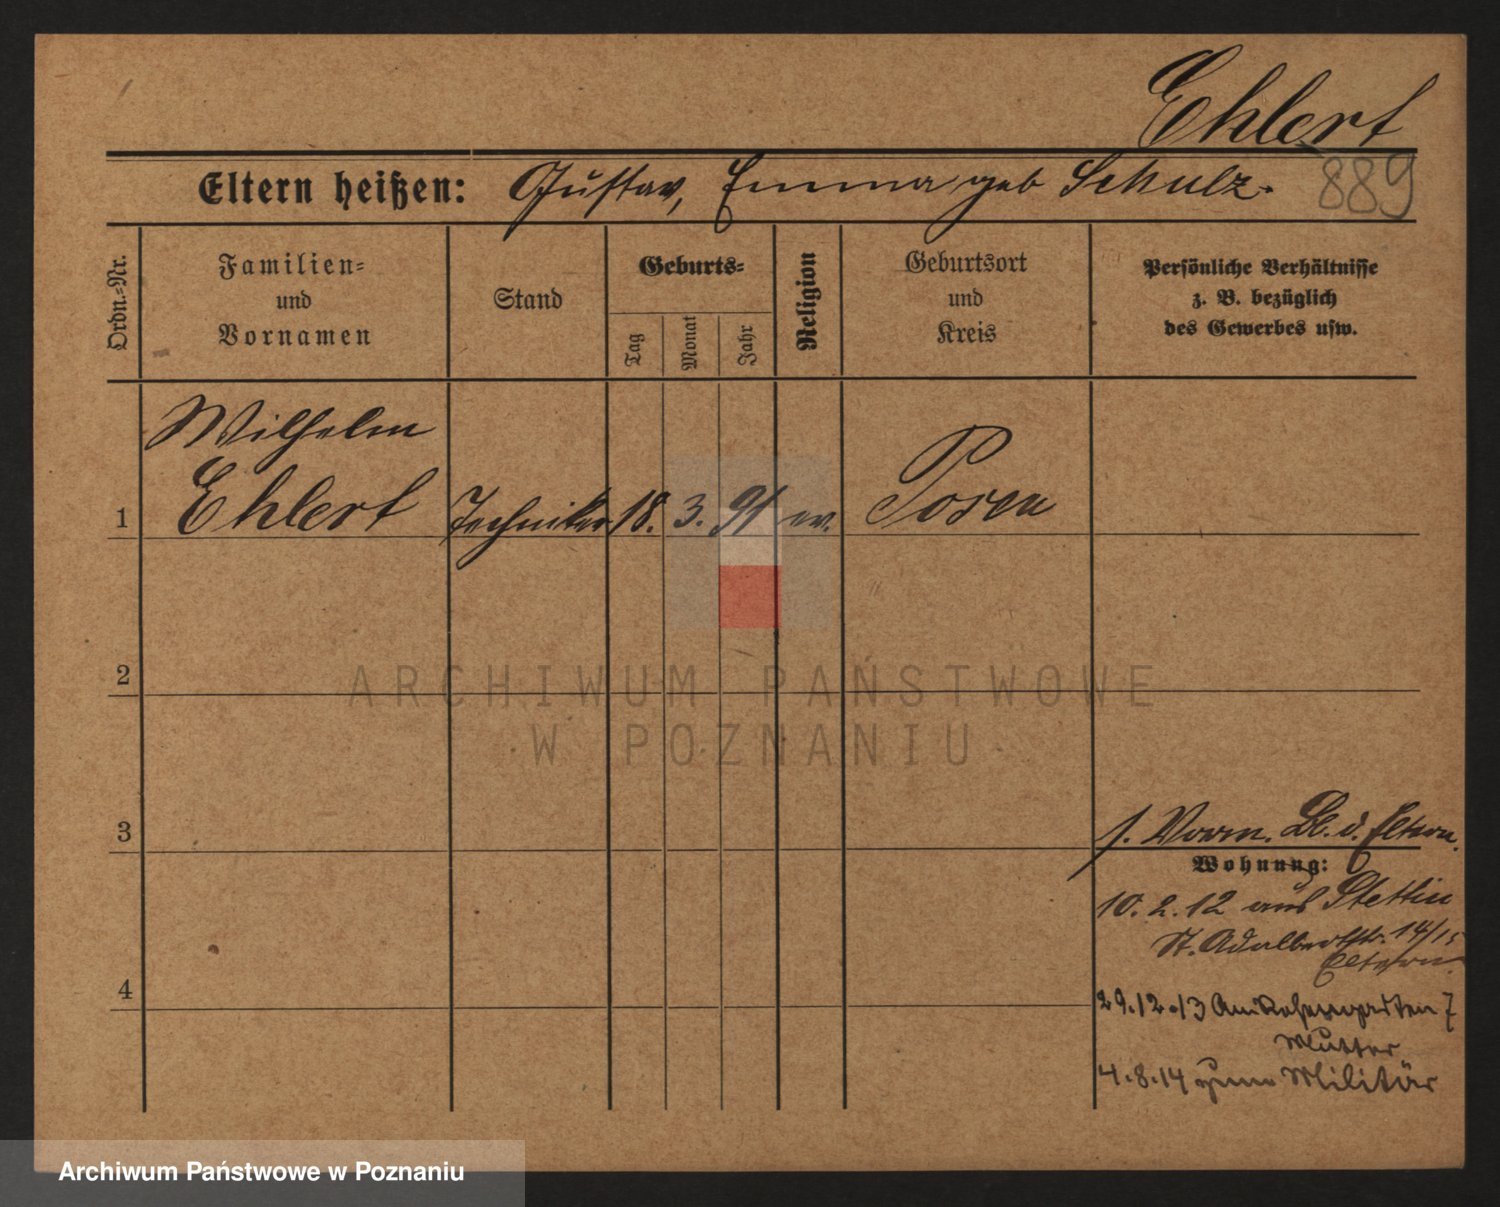 Ehlert
889
Eltern heißen: Gustav, Emma geb Schulz.
Ordn.=Nr.
Familien=
und
Vornamen
Stand
Geburts=
Tag
Monat
Jahr
Religion
Geburtsort
und
Kreis
Persönliche Verhältnisse
z. B. bezüglich
des Gewerbes usw.
Wilhelm
1 Ehlert Techniker 18. 3. 91 ev. Posen
2
3
4
s. Vorm. Bl. d. Eltern.
Wohnung:
10.2.12 aus Stettin
St. Adalbertstr. 14/15
Eltern.
29.12.13 7
Mutter
4.8.14 zum Militär
ARCHIWUM PAŃSTWOWE
W POZNANIU
Archiwum Państwowe w Poznaniu